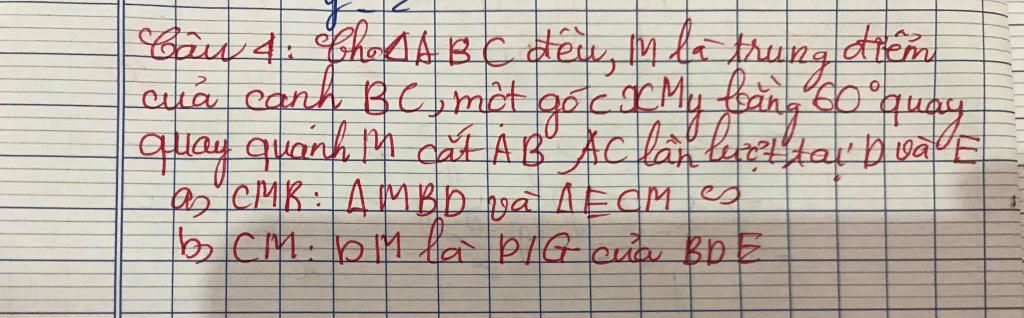 Câu 4: Cho ΔABC đều, M là trung điểm
của canh BC, một góc xMy bằng 60° quay
quay quanh M cắt AB AC lần lượt tại D và E
a) CMR: ΔMBD và ΔECM ∽
b) CM: DM là P/G của BDE